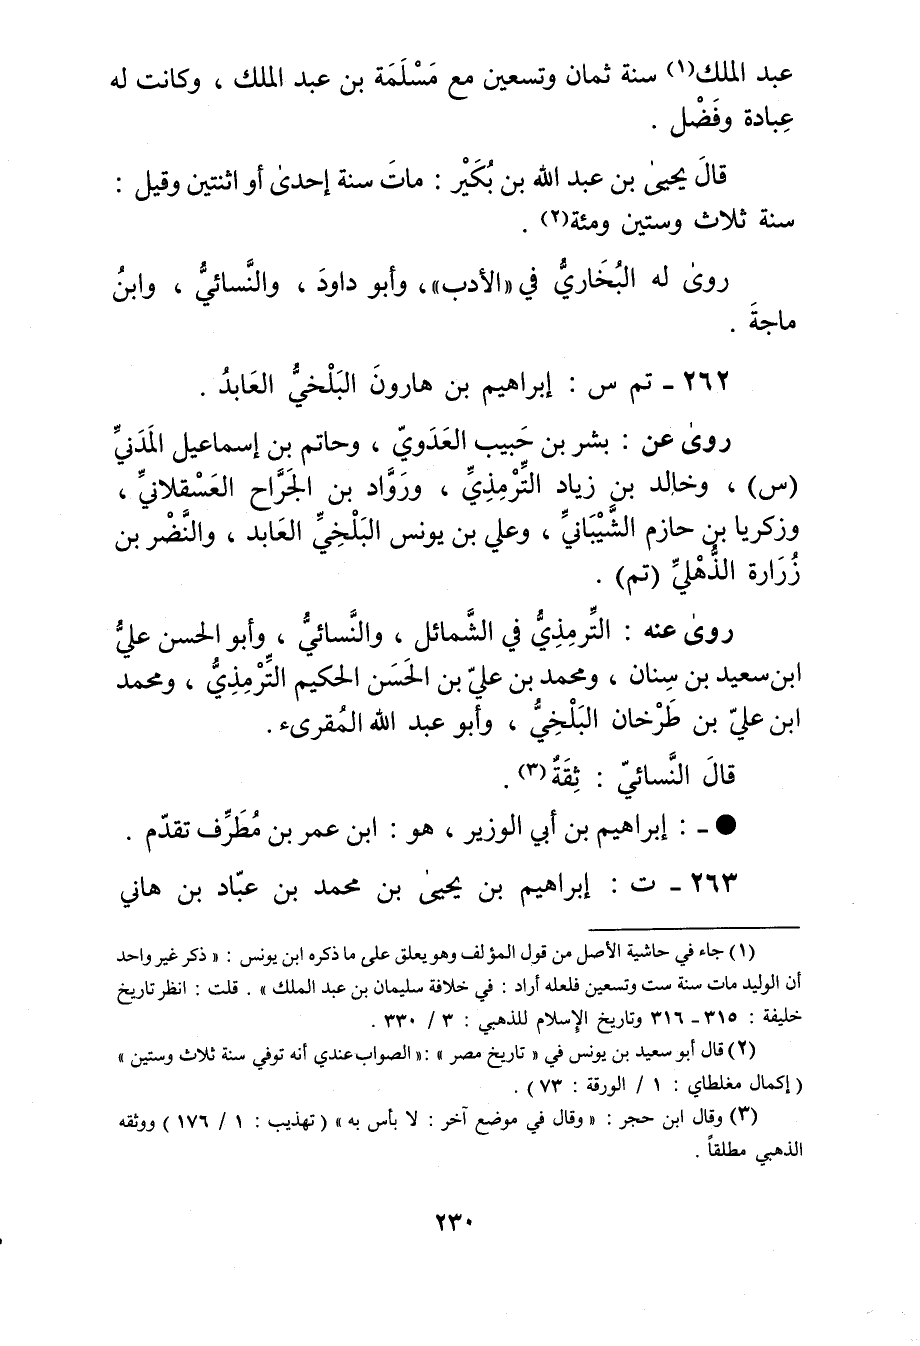 عبد الملك(١) سنة ثمان وتسعين مع مَسْلَمَة بن عبد الملك ، وكانت له
عِبادة وفَضْل .
قالَ يحيىٰ بن عبد الله بن بُكَيْر : ماتَ سنة إحدىٰ أو اثنتين وقيل :
سنة ثلاث وستين ومئة(٢) .
روىٰ له البُخَاريُّ في «الأدب»، وأبو داودَ ، والنَّسائيُّ ، وابنُ
ماجةَ .
٢٦٢ ـ تم س : إبراهيم بن هارونَ البَلْخيُّ العَابدُ .
روىٰ عن : بشر بن حَبيب العَدَويّ ، وحاتم بن إسماعيل المَدَنيِّ
(س) ، وخالد بن زياد التِّرْمِذِيِّ ، ورَوَّاد بن الجَرَّاح العَسْقلانيِّ ،
وزكريا بن حازم الشَّيْبَانيِّ ، وعلي بن يونس البَلْخِيِّ العَابد ، والنَّضْر بن
زُرَارة الذُّهْليِّ (تم) .
روىٰ عنه : التِّرمِذِيُّ في الشَّمائل ، والنَّسائيُّ ، وأبو الحسن عليُّ
ابن سعيد بن سِنان ، ومحمد بن عليّ بن الحَسَن الحكيم التِّرْمِذِيُّ ، ومحمد
ابن عليّ بن طَرْخان البَلْخِيُّ ، وأبو عبد الله المُقرىء .
قالَ النَّسائيّ : ثِقَةٌ(٣) .
● ـ : إبراهيم بن أبي الوزير ، هو : ابن عمر بن مُطَرِّف تقدّم .
٢٦٣ ـ ت : إبراهيم بن يحيىٰ بن محمد بن عبّاد بن هاني
(١) جاء في حاشية الأصل من قول المؤلف وهو يعلق على ما ذكره ابن يونس : « ذكر غير واحد
أن الوليد مات سنة ست وتسعين فلعله أراد : في خلافة سليمان بن عبد الملك » . قلت : انظر تاريخ
خليفة : ٣١٥ ـ ٣١٦ وتاريخ الإسلام للذهبي : ٣ / ٣٣٠ .
(٢) قال أبو سعيد بن يونس في « تاريخ مصر » :« الصواب عندي أنه توفي سنة ثلاث وستين »
( إكمال مغلطاي : ١ / الورقة : ٧٣ ) .
(٣) وقال ابن حجر : « وقال في موضع آخر : لا بأس به » ( تهذيب : ١ / ١٧٦ ) ووثقه
الذهبي مطلقاً .
٢٣٠